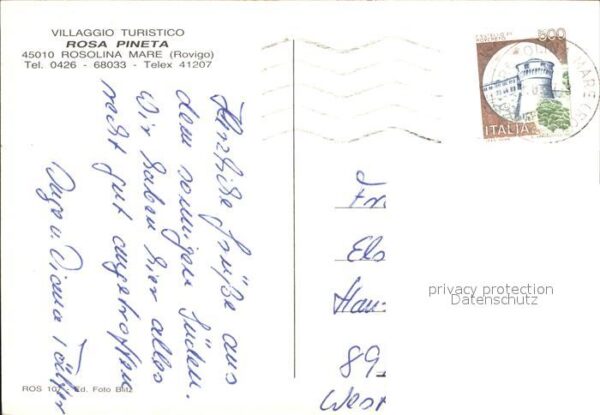 VILLAGGIO TURISTICO
ROSA PINETA
45010 ROSOLINA MARE (Rovigo)
Tel. 0426 - 68033 - Telex 41207
Herzliche Grüße aus
dem sonnigen Süden.
Wir haben hier alles
recht gut angetroffen
Diana
500
ITALIA
MARE
Fr
Els
Hau
89
West
privacy protection
Datenschutz
ROS 107 - Ed. Foto Blitz